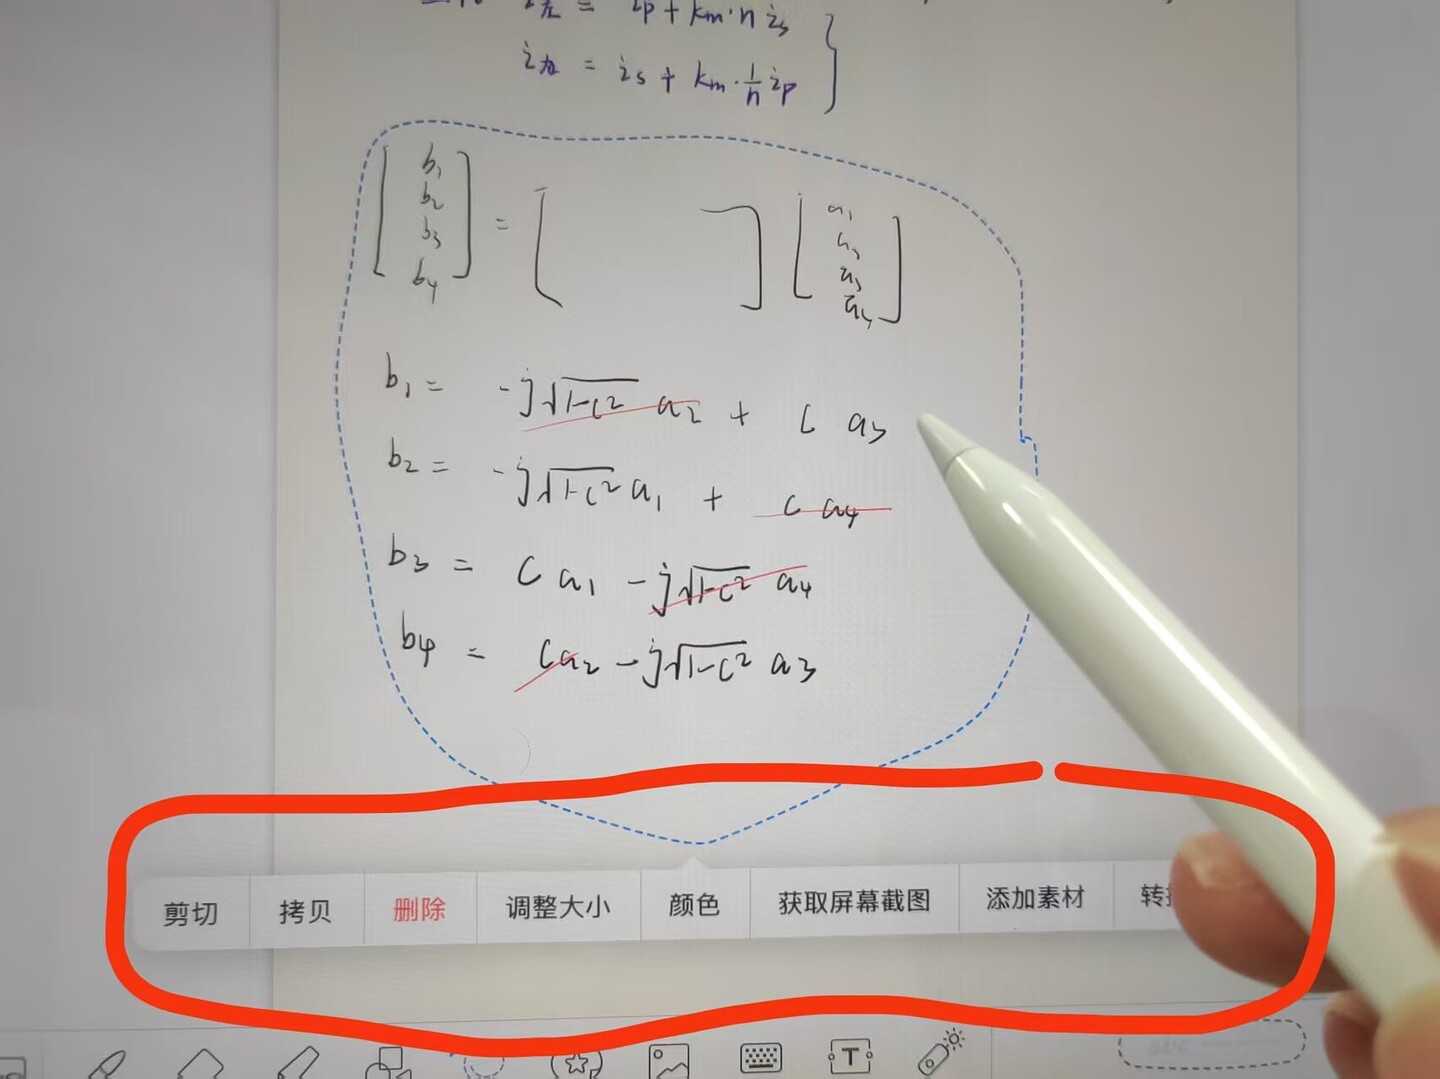 = ip + km·n is
i为 = is + km·1/n ip
[b1 b2 b3 b4] = [ ] [a1 a2 a3 a4]
b1 = -j√1-c² a2 + c a3
b2 = -j√1-c² a1 + c a4
b3 = c a1 - j√1-c² a4
b4 = c a2 - j√1-c² a3
剪切 拷贝 删除 调整大小 颜色 获取屏幕截图 添加素材 转
T